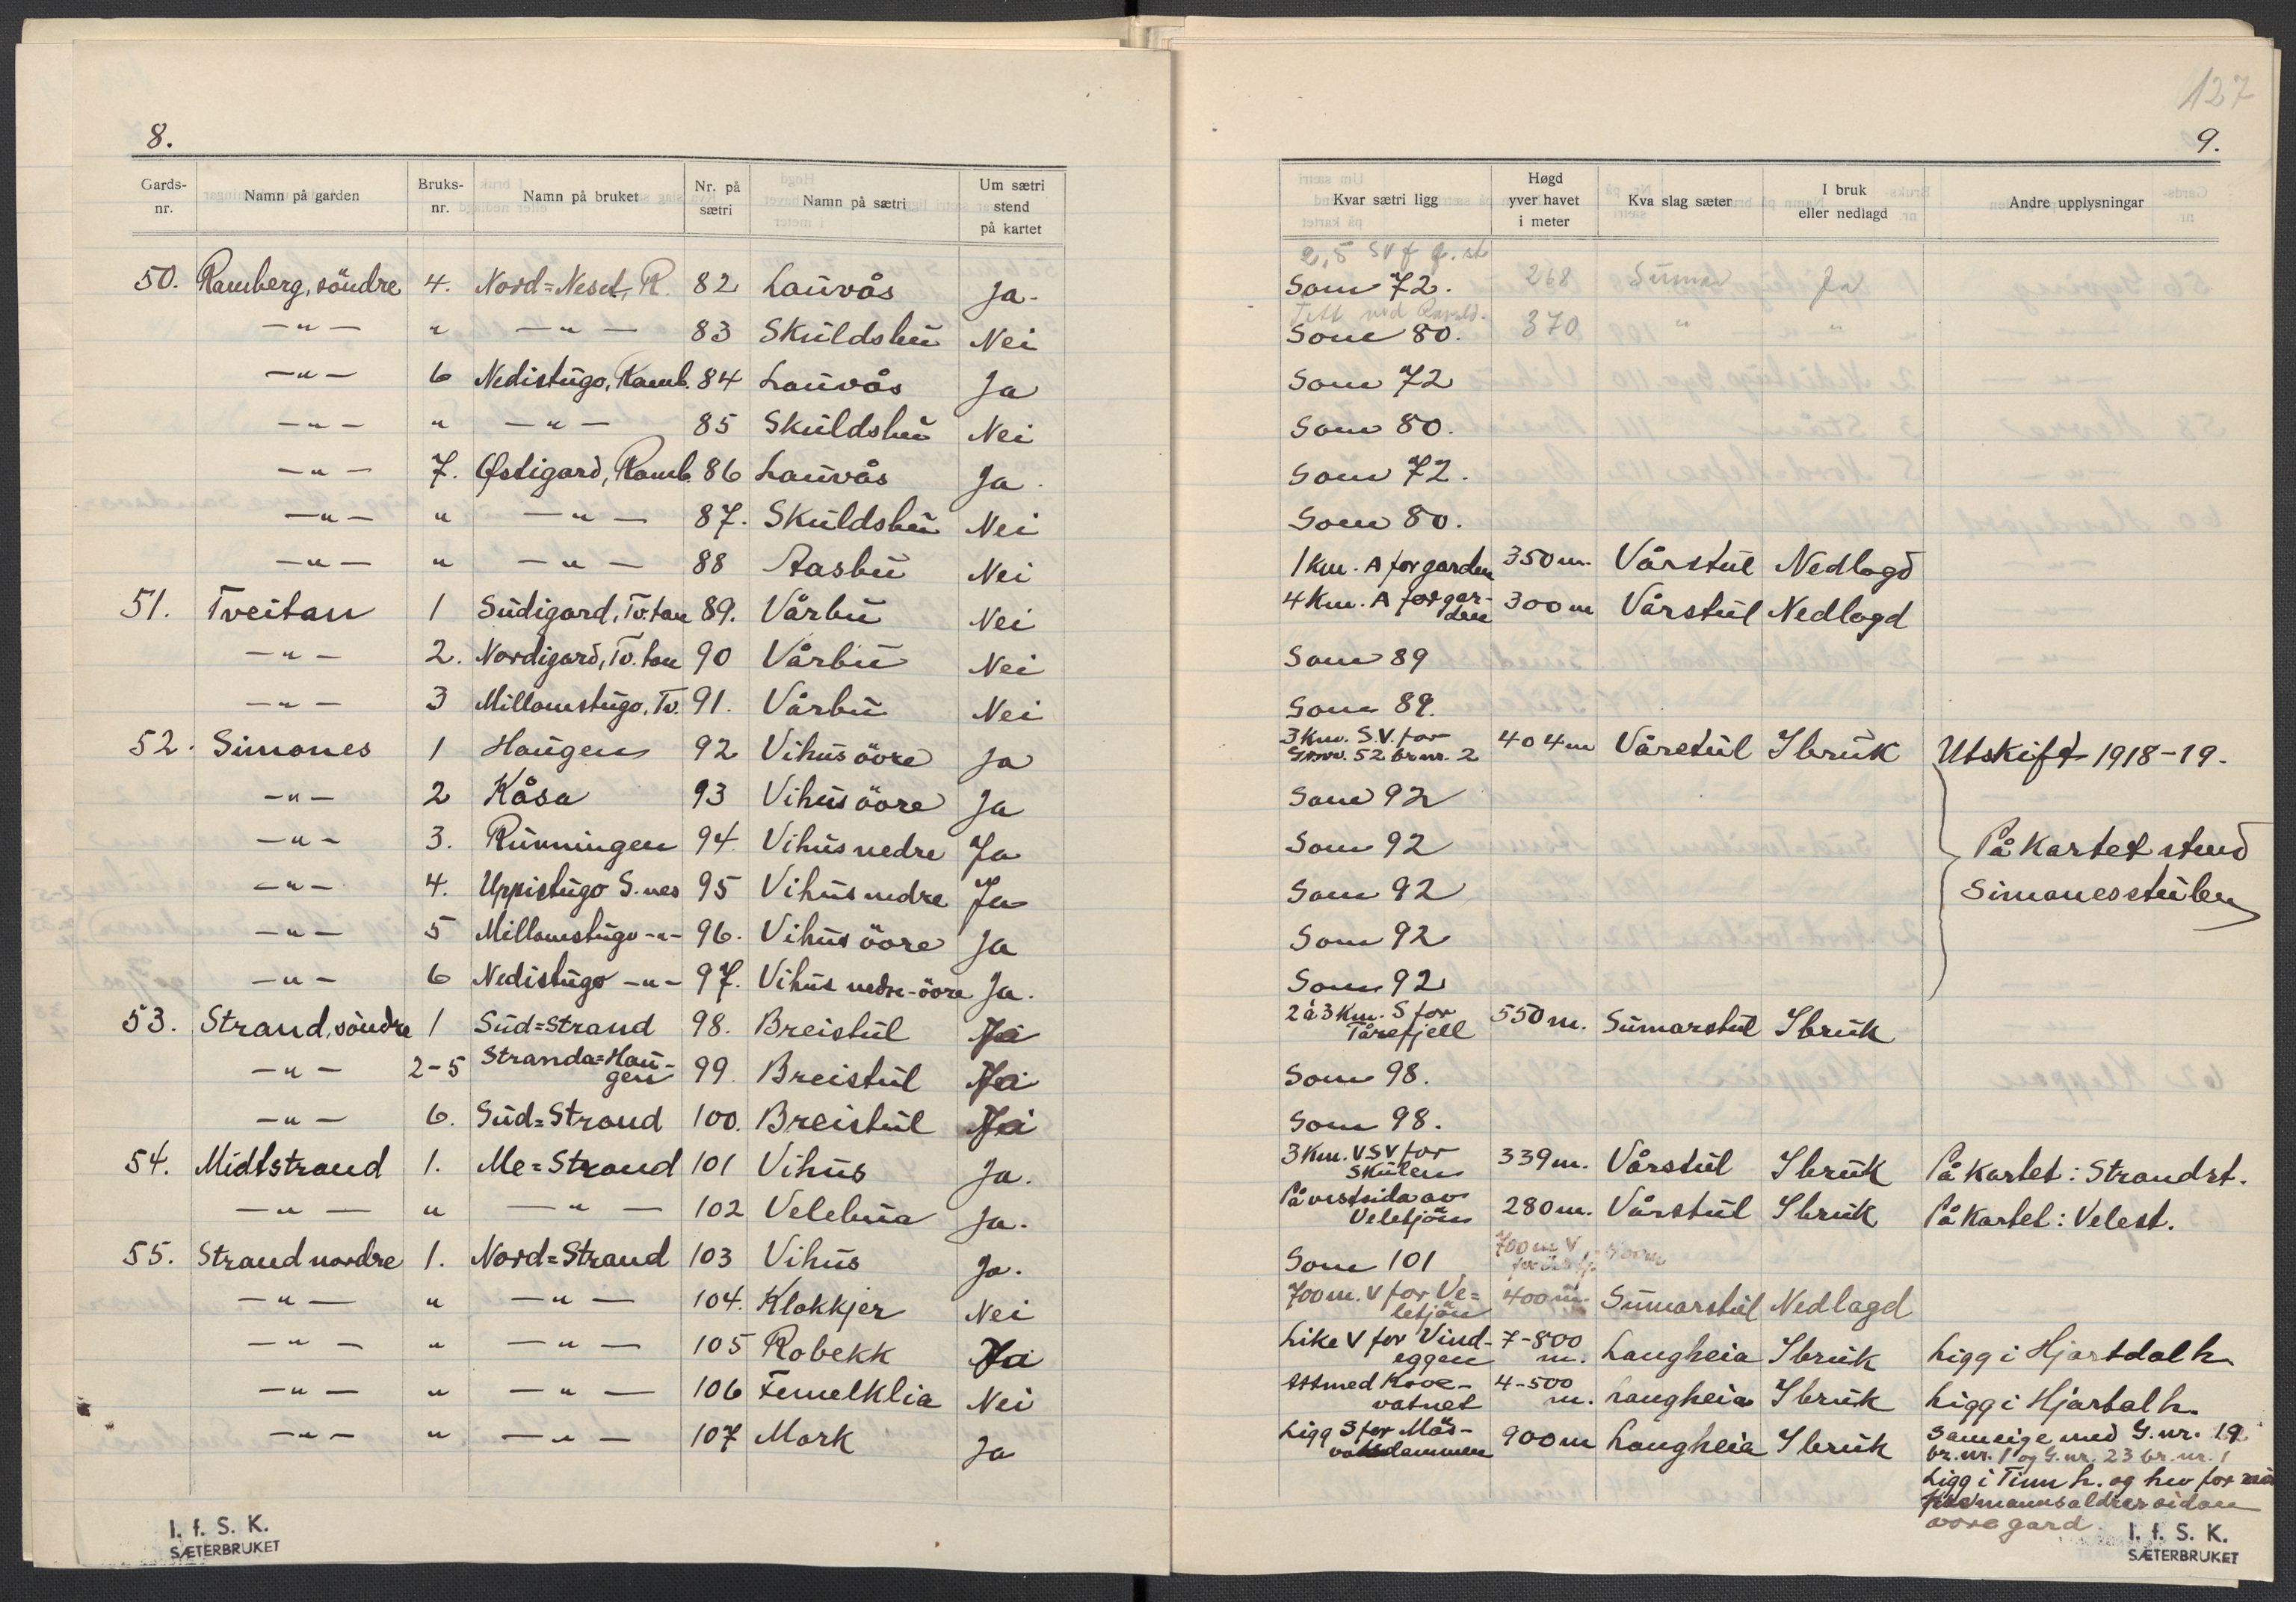 8.
Gards-nr. Namn på garden Bruks-nr. Namn på bruket Nr. på sætri Namn på sætri Um sætri stend på kartet
50. Ramberg, söndre 4. Nord=Neset, R. 82 Lauvås Ja.
-"- " -"- 83 Skuldsbu Nei
-"- 6 Nedistugo, Ramb. 84 Lauvås Ja
-"- " -"- 85 Skuldsbu Nei
-"- 7. Østigard, Ramb. 86 Lauvås Ja.
-"- " -"- 87. Skuldsbu Nei
-"- " -"- 88 Aasbu Nei
51. Tveitan 1 Sudigard, Tv.tan 89. Vårbu Nei
-"- 2. Nordigard, Tv.tan 90 Vårbu Nei
-"- 3 Millomstugo, Tv. 91. Vårbu Nei
52. Simones 1 Haugen 92 Vihus övre Ja
-"- 2 Kåsa 93 Vihus övre Ja
-"- 3. Runningen 94. Vihus nedre Ja
-"- 4. Uppistugo S.nes 95 Vihus nedre Ja
-"- 5 Millomstugo -"- 96. Vihus övre Ja
-"- 6 Nedistugo -"- 97. Vihus nedre-övre Ja.
53. Strand, söndre 1 Sud=Strand 98. Breistul Ja
-"- 2-5 Stranda=Haugen 99. Breistul Ja
-"- 6. Sud=Strand 100. Breistul Ja
54. Midtstrand 1. Me=Strand 101 Vihus Ja.
-"- " -"- 102 Velebua Ja.
55. Strand nordre 1. Nord=Strand 103 Vihus Ja.
-"- " -"- 104. Klokkjer Nei
-"- " -"- 105 Robekk Ja
-"- " -"- 106 Femelklia Nei
-"- " -"- 107 Mork Ja
I. f. S. K.
SÆTERBRUKET
127
9.
Kvar sætri ligg Høgd yver havet i meter Kva slag sæter I bruk eller nedlagd Andre upplysningar
2,5 SV f
Som 72. 268 Sumar Ja
Tett ved
Som 80. 370 " "
Som 72
Som 80.
Som 72.
Som 80.
1 km. A for garden 350 m. Vårstul Nedlagd
4 km. A for garden 300 m Vårstul Nedlagd
Som 89
Som 89.
3 km. S.V. for G.nr. 52 br.nr. 2 404 m Vårstul I bruk Utskift 1918-19.
Som 92
Som 92 På kartet stend
Som 92 Simonesstulen
Som 92
Som 92
2 à 3 km. S for Tårefjell 550 m. Sumarstul I bruk
Som 98.
Som 98.
3 km. VSV for skulen 339 m. Vårstul I bruk På kartet: Strandst.
På vestsida av Veletjön 280 m. Vårstul I bruk På kartet: Velest.
Som 101 700 m V
700 m. V for Veletjön 400 m. Sumarstul Nedlagd
Like V for Vindeggen 7-800 m. Langheia I bruk Ligg i Hjartdal h.
Attmed Kovevatnet 4-500 m. Langheia I bruk Ligg i Hjartal h.
Ligg S for Mösvatsdammen 900 m Langheia I bruk Sameige med G.nr. 19
br.nr. 1 og G.nr. 23 br.nr. 1
Ligg i Tinn h. og hev for
mannsaldrer sidan
vore gard.
I. f. S. K.
SÆTERBRUKET